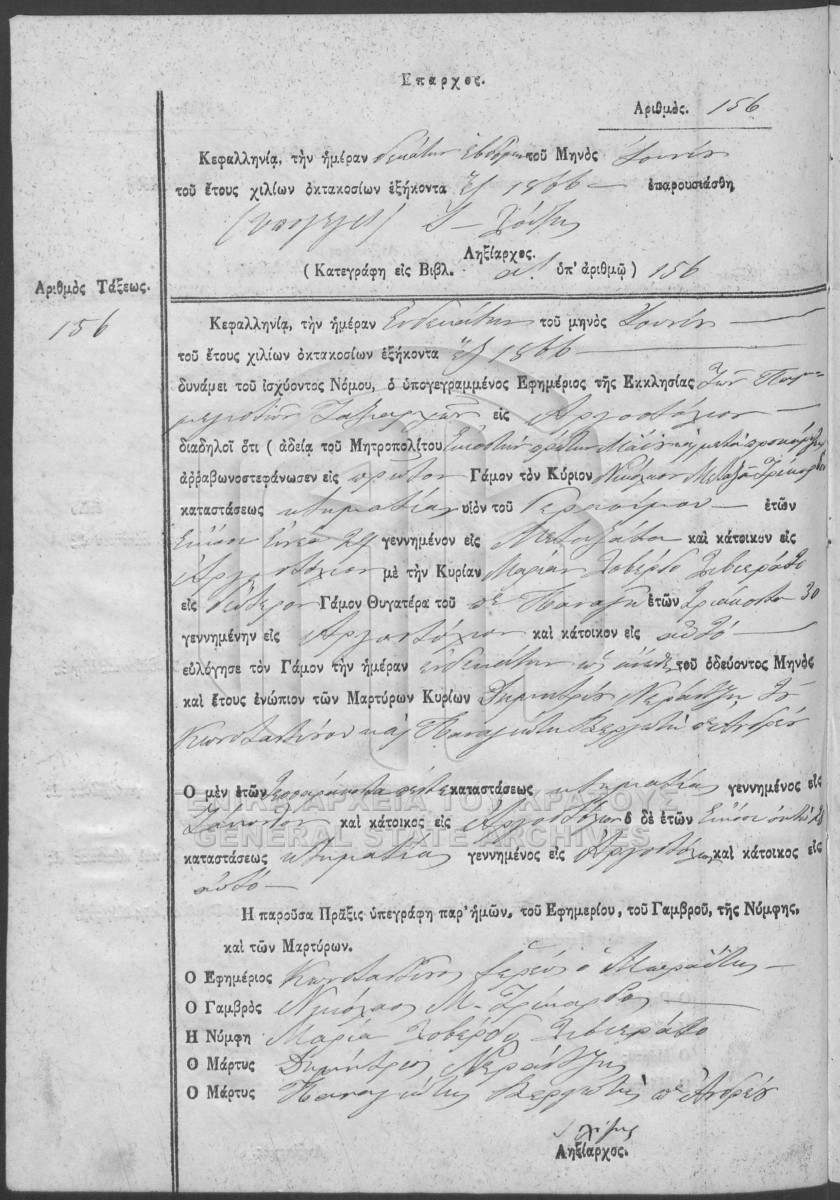 Επαρχος.
Αριθμὸς. 156
Κεφαλληνίᾳ, τὴν ἡμέραν δεκάτην ἑβδόμην τοῦ Μηνὸς Ἰουνίου
τοῦ ἔτους χιλίων ὀκτακοσίων ἑξήκοντα ἓξ 1866 — ἐπαρουσιάσθη
Ληξίαρχος.
( Κατεγράφη εἰς Βιβλ. ὑπ' ἀριθμῷ ) 156
Αριθμὸς Τάξεως.
156
Κεφαλληνίᾳ, τὴν ἡμέραν Ἑνδεκάτην τοῦ μηνὸς Ἰουνίου —
τοῦ ἔτους χιλίων ὀκτακοσίων ἑξήκοντα ἓξ 1866 —
δυνάμει τοῦ ἰσχύοντος Νόμου, ὁ ὑπογεγραμμένος Εφημέριος τῆς Εκκλησίας τῶν Παμ-
μεγίστων Ταξιαρχῶν εἰς Ἀργοστόλιον —
διαδηλοῖ ὅτι ( ἀδείᾳ τοῦ Μητροπολίτου
ἀῤῥαβωνοστεφάνωσεν εἰς πρῶτον Γάμον τὸν Κύριον Νικόλαον
καταστάσεως κτηματίας υἱὸν τοῦ Γερασίμου — ἐτῶν
Εἴκοσι Ἐννέα 29 γεννημένον εἰς Μεταξάτα καὶ κάτοικον εἰς
Ἀργοστόλιον μὲ τὴν Κυρίαν Μαρίαν Λοβέρδο Λιβιεράτο
εἰς δεύτερον Γάμον Θυγατέρα τοῦ Παναγῆ ἐτῶν Τριάκοντα 30
γεννημένην εἰς Ἀργοστόλιον καὶ κάτοικον εἰς αὐτό —
εὐλόγησε τὸν Γάμον τὴν ἡμέραν ἑνδεκάτην ὡς ἄνωθεν τοῦ ὁδεύοντος Μηνὸς
καὶ ἔτους ἐνώπιον τῶν Μαρτύρων Κυρίων Δημητρίου Νεράντζη τοῦ
Κωνσταντίνου καὶ Παναγιώτη Βεργωτῆ Ἀνδρέου
Ο μὲν ἐτῶν Τεσσαράκοντα πέντε καταστάσεως κτηματίας γεννημένος εἰς
καὶ κάτοικος εἰς Ἀργοστόλιον ὁ δὲ ἐτῶν Εἴκοσι ὀκτὼ 28
καταστάσεως κτηματίας γεννημένος εἰς Ἀργοστόλιον καὶ κάτοικος εἰς
αὐτό —
Η παροῦσα Πρᾶξις ὑπεγράφη παρ' ἡμῶν, τοῦ Εφημερίου, τοῦ Γαμβροῦ, τῆς Νύμφης,
καὶ τῶν Μαρτύρων.
Ο Εφημέριος Κωνσταντῖνος Ἱερεὺς ὁ
Ο Γαμβρὸς Νικόλαος Μ.
Η Νύμφη Μαρία Λοβέρδο Λιβιεράτο
Ο Μάρτυς Δημήτριος Νεράντζης
Ο Μάρτυς Παναγιώτης Βεργωτῆς Ἀνδρέου
Ληξίαρχος.
ΓΕΝΙΚΑ ΑΡΧΕΙΑ ΤΟΥ ΚΡΑΤΟΥΣ
GENERAL STATE ARCHIVES